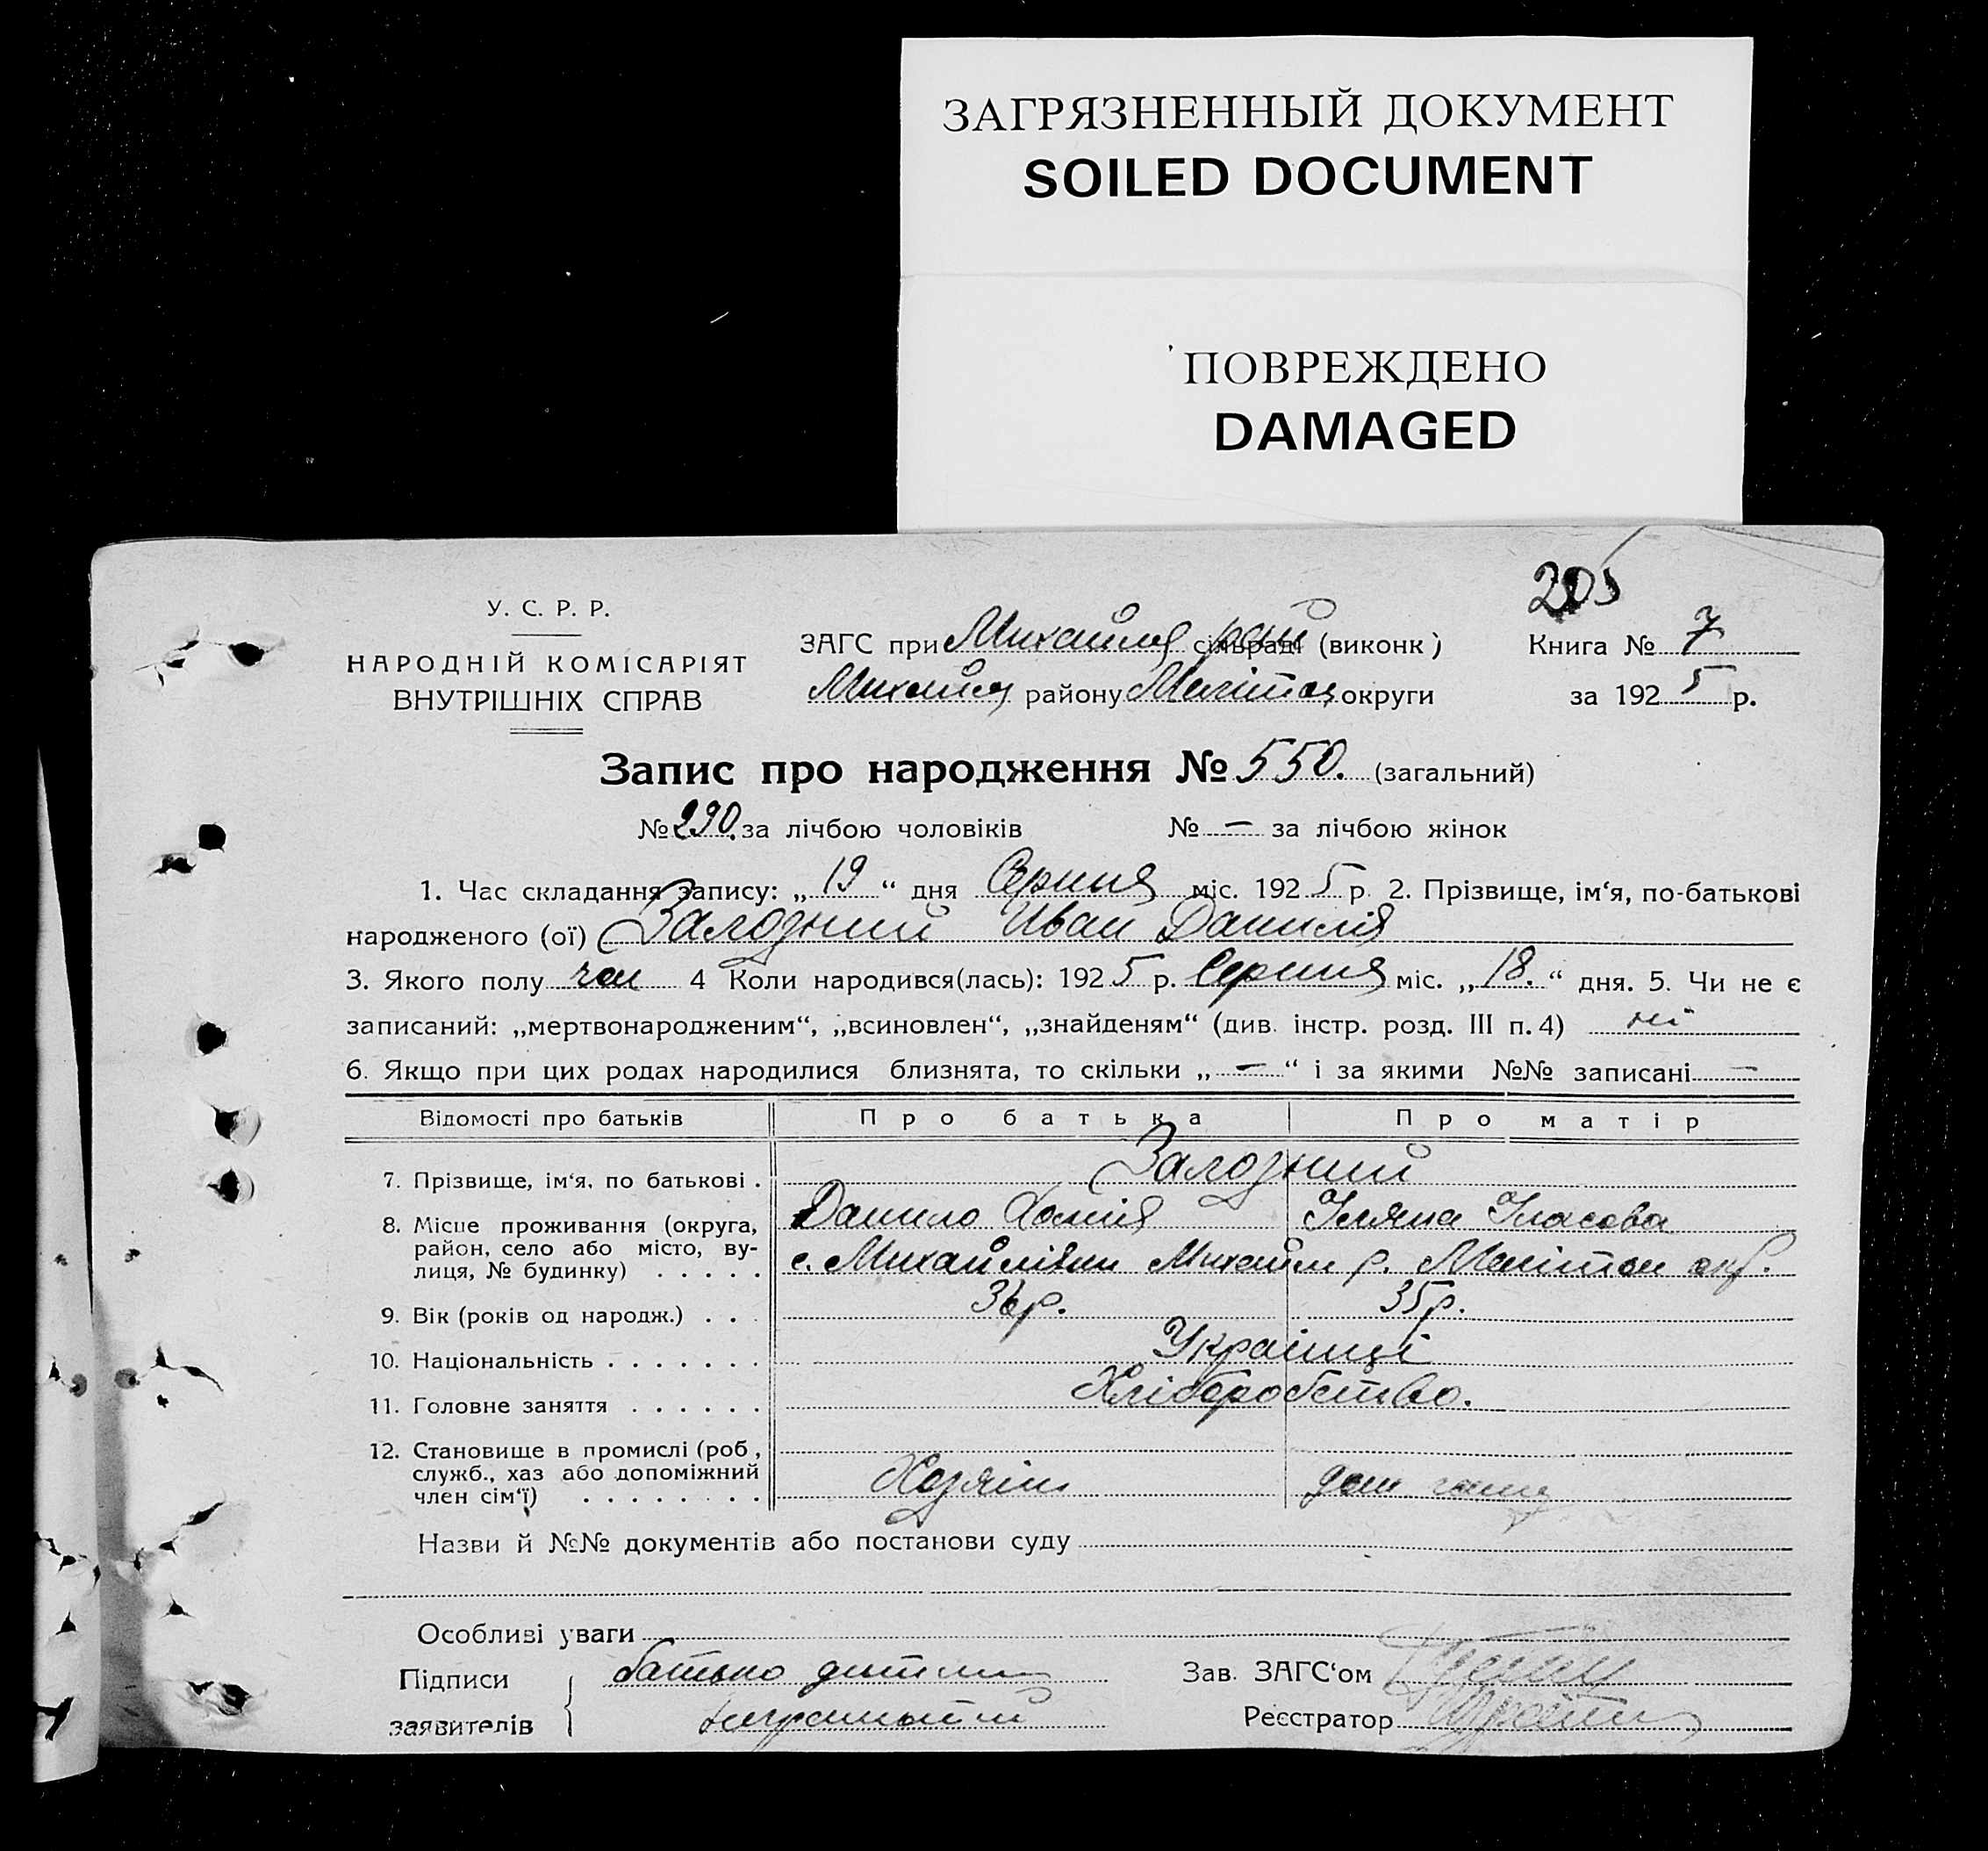 ЗАГРЯЗНЕННЫЙ ДОКУМЕНТ
SOILED DOCUMENT
ПОВРЕЖДЕНО
DAMAGED
205
У. С. Р. Р.
НАРОДНІЙ КОМІСАРІЯТ
ВНУТРІШНІХ СПРАВ
ЗАГС при Михайлів сільраді (виконк)
Михайлів району Мелітоп округи
Книга № 7
за 1925 р.
Запис про народження № 550. (загальний)
№ 290. за лічбою чоловіків № — за лічбою жінок
1. Час складання запису: „ 19 “ дня Серпня міс. 1925 р. 2. Прізвище, ім‘я, по-батькові
народженого (ої) Залозний Иван Данилів
3. Якого полу чол 4 Коли народився(лась): 1925 р. Серпня міс. „ 18. “ дня. 5. Чи не є
записаний: „мертвонародженим“, „всиновлен“, „знайденям“ (див. інстр. розд. III п. 4) ні
6. Якщо при цих родах народилися близнята, то скільки „ — “ і за якими №№ записані —
Відомості про батьків Про батька Про матір
7. Прізвище, ім‘я, по батькові . Залозний
Данило Хомів
8. Місце проживання (округа, район, село або місто, ву-
лиця, № будинку) . . . . . с. Михайлівки Михайл р. Мелітоп окр.
9. Вік (років од народж.) . . . 36 р. 35 р.
10. Національність . . . . . . . Українці
11. Головне заняття . . . . . . Хлібробство.
12. Становище в промислі (роб.,
служб., хаз або допоміжний
член сім‘ї) . . . . . . . . Хозяїн дом
Назви й №№ документів або постанови суду
Особливі уваги
Підписи батько дитини Зав. ЗАГС‘ом
заявителів неграмотний Реєстратор